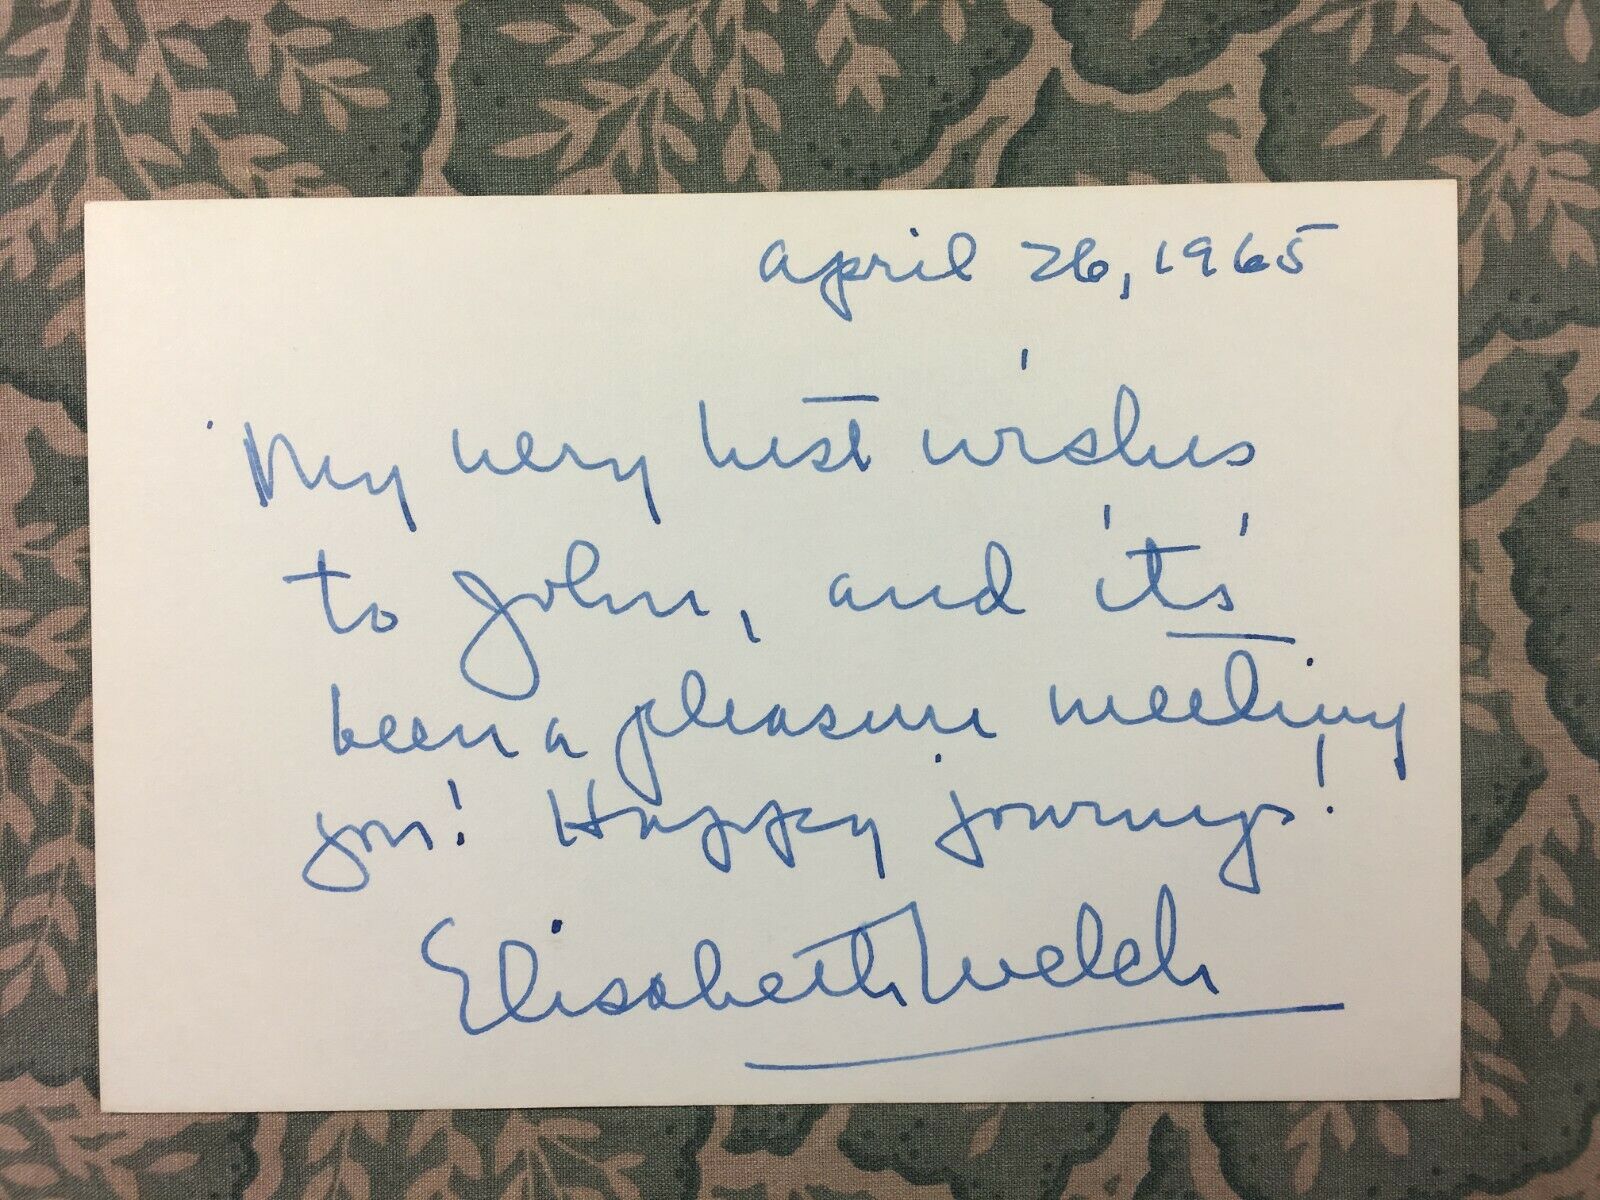 April 26, 1965
My very best wishes
to John, and it's
been a pleasure meeting
you! Happy journeys!
Elisabeth Welch